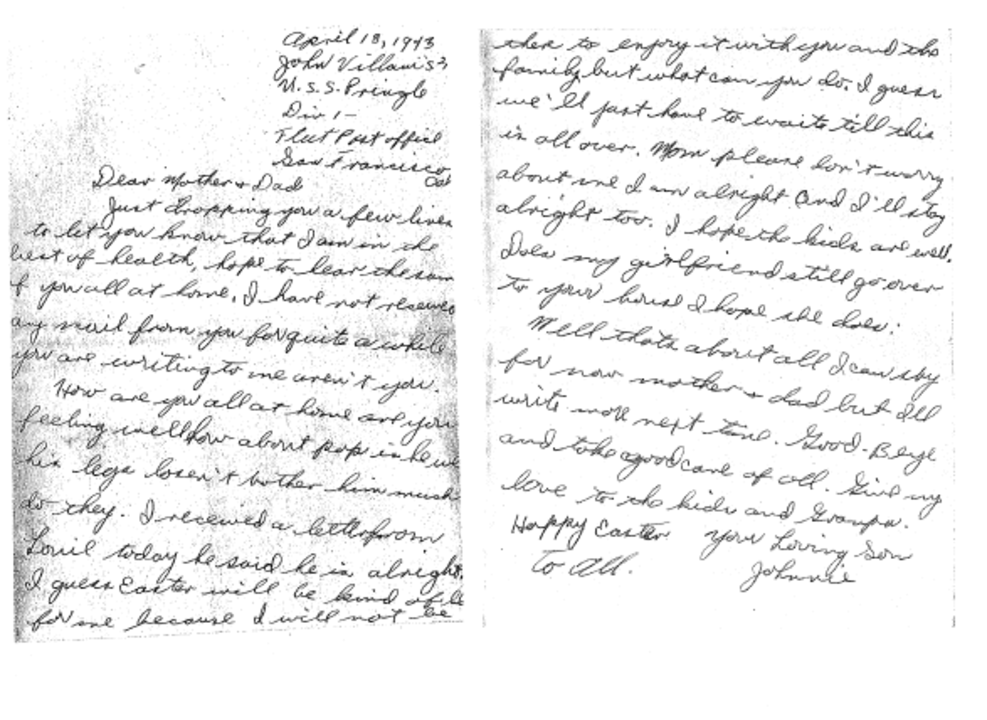 April 18, 1943
John Villani S2
U.S.S. Pringle
Div 1-
Fleet Post office
San Francisco
Cal
Dear Mother + Dad
Just dropping you a few lines
to let you know that I am in the
best of health, hope to hear the sam
f you all at home. I have not received
any mail from you for quite a while
you are writing to me aren't you.
How are you all at home are you
feeling well how about pop is he we
his legs dosen't bother him much
do they. I received a letter from
Louie today he said he is alright.
I guess Easter will be kind of
for me because I will not be
there to enjoy it with you and the
family but what can you do. I guess
we'll just have to waite till this
is all over. Mom please don't worry
about me I am alright and I'll stay
alright too. I hope the kids are well.
Does my girlfriend still go over
to your house I hope she does.
Well thats about all I can say
for now mother + dad but Ill
write more next time. Good-Bye
and take a good care of all. Give my
love to the kids and Grampa.
Happy Easter your Loving Son
To All. Johnnie